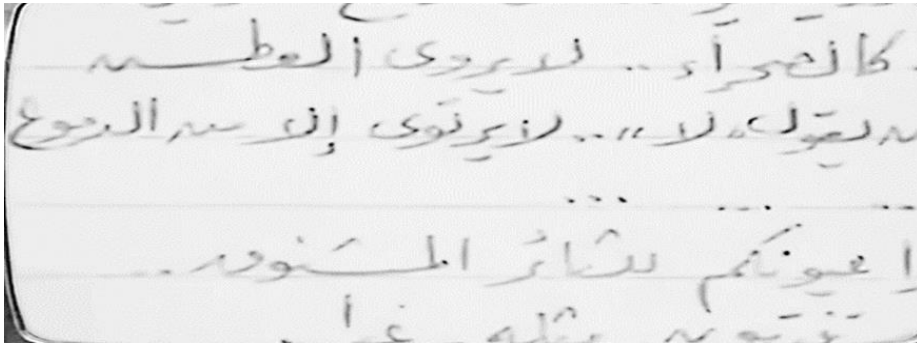 كالصحرآء .. لا يروى العطش
من يقول « لا » .. لا يرتوى إلا من الدموع
.. ... ...
عيونكم للثائر المشنوق ..
مثله غدا